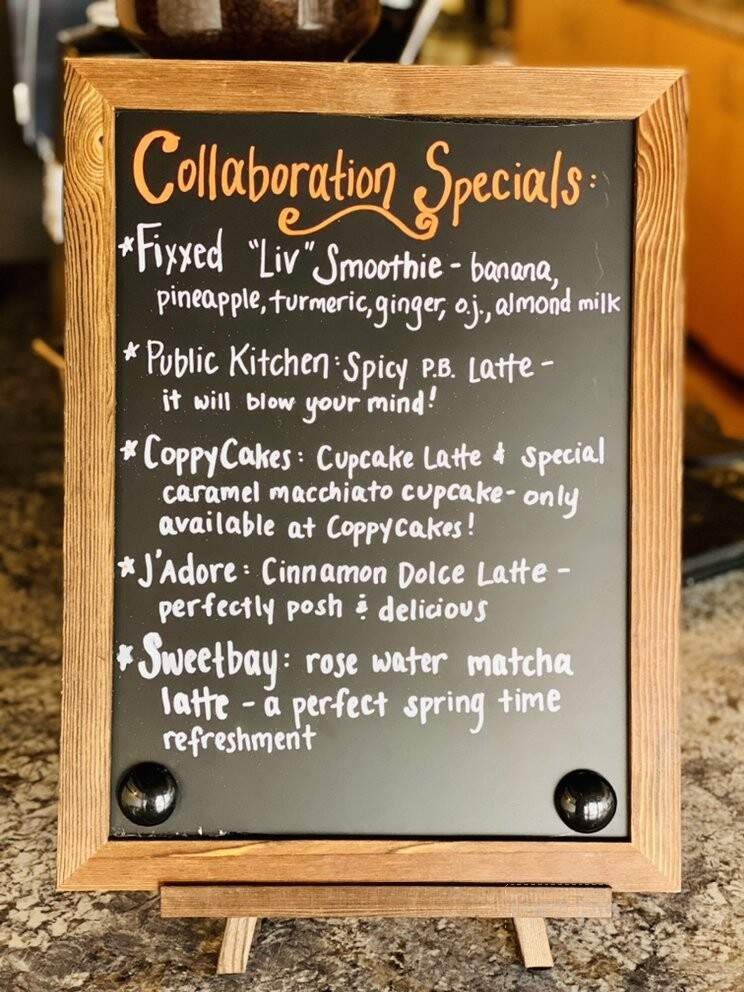 Collaboration Specials:
*Fixxed "Liv" Smoothie - banana,
pineapple, turmeric, ginger, o.j., almond milk
* Public Kitchen: Spicy P.B. Latte -
it will blow your mind!
* CoppyCakes: Cupcake Latte & special
caramel macchiato cupcake - only
available at CoppyCakes!
* J'Adore: Cinnamon Dolce Latte -
perfectly posh & delicious
* Sweetbay: rose water matcha
latte - a perfect spring time
refreshment